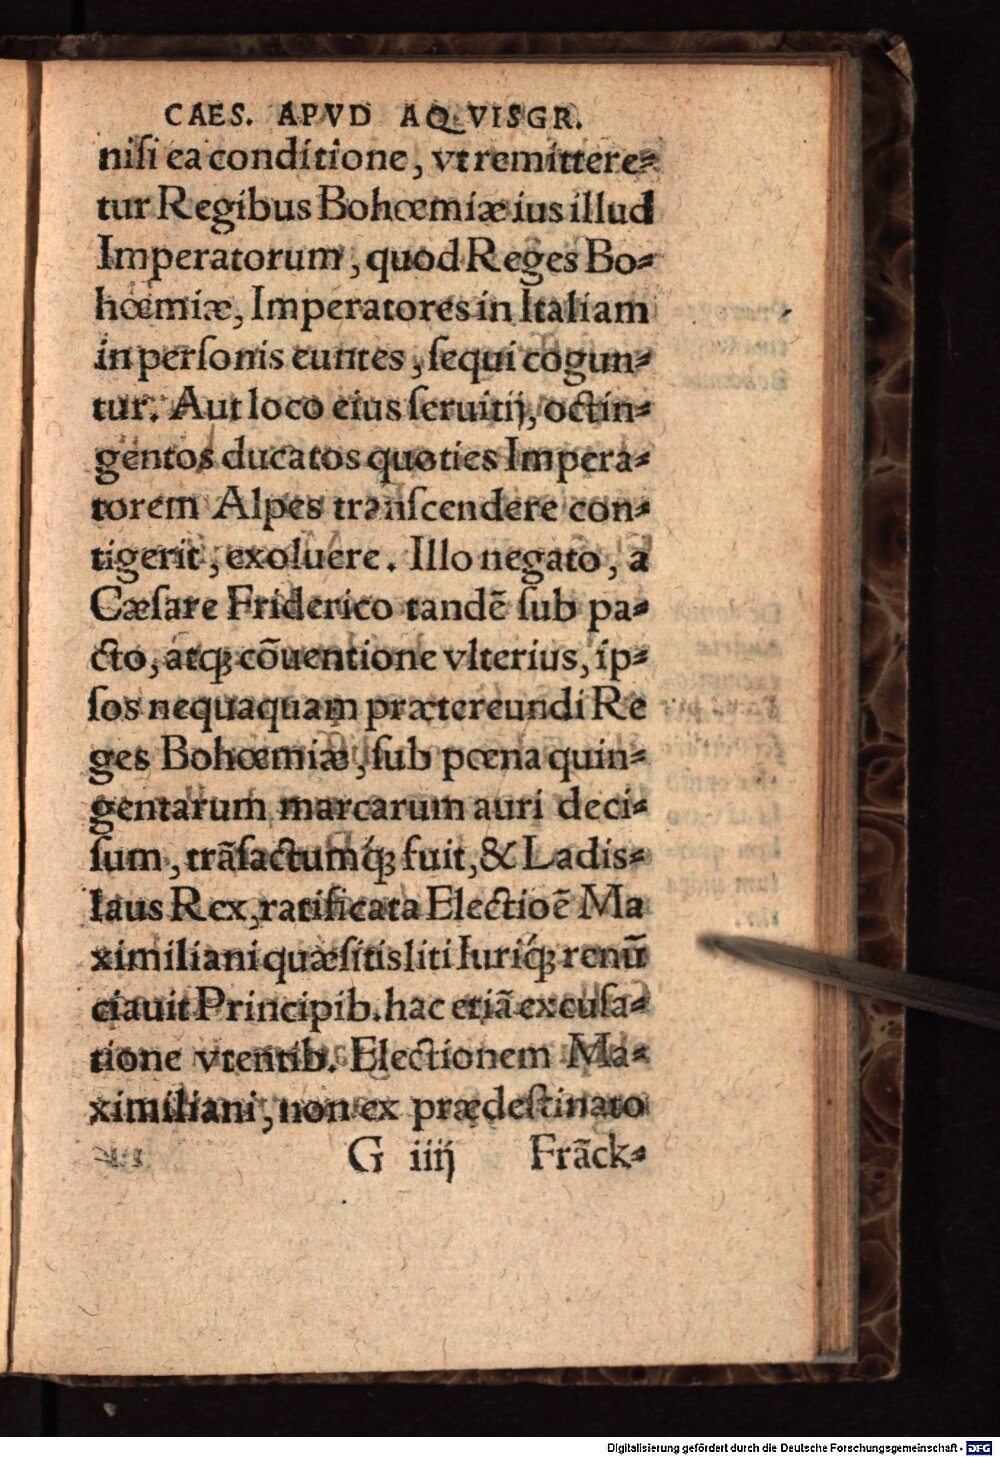 CAES. APVD AQVISGR.
niſi ea conditione, vt remittere⸗
tur Regibus Bohœmiæ ius illud
Imperatorum, quod Reges Bo⸗
hœmiæ, Imperatores in Italiam
in perſonis euntes, ſequi cogun⸗
tur. Aut loco eius ſeruitij, octin⸗
gentos ducatos quoties Impera⸗
torem Alpes tranſcendere con⸗
tigerit, exoluere. Illo negato, a
Cæſare Friderico tandē ſub pa⸗
cto, atq; cōuentione vlterius, ip⸗
ſos nequaquam prætereundi Re
ges Bohœmiæ, ſub pœna quin⸗
gentarum marcarum auri deci⸗
ſum, trāſactumq́; fuit, & Ladis⸗
laus Rex, ratificata Electioē Ma
ximiliani quæſitis liti Iuriq́; renū
ciauit Principib. hac etiā excuſa⸗
tione vtentib. Electionem Ma⸗
ximiliani, non ex prædeſtinato
G iiij Frāck⸗
Digitalisierung gefördert durch die Deutsche Forschungsgemeinschaft - DFG